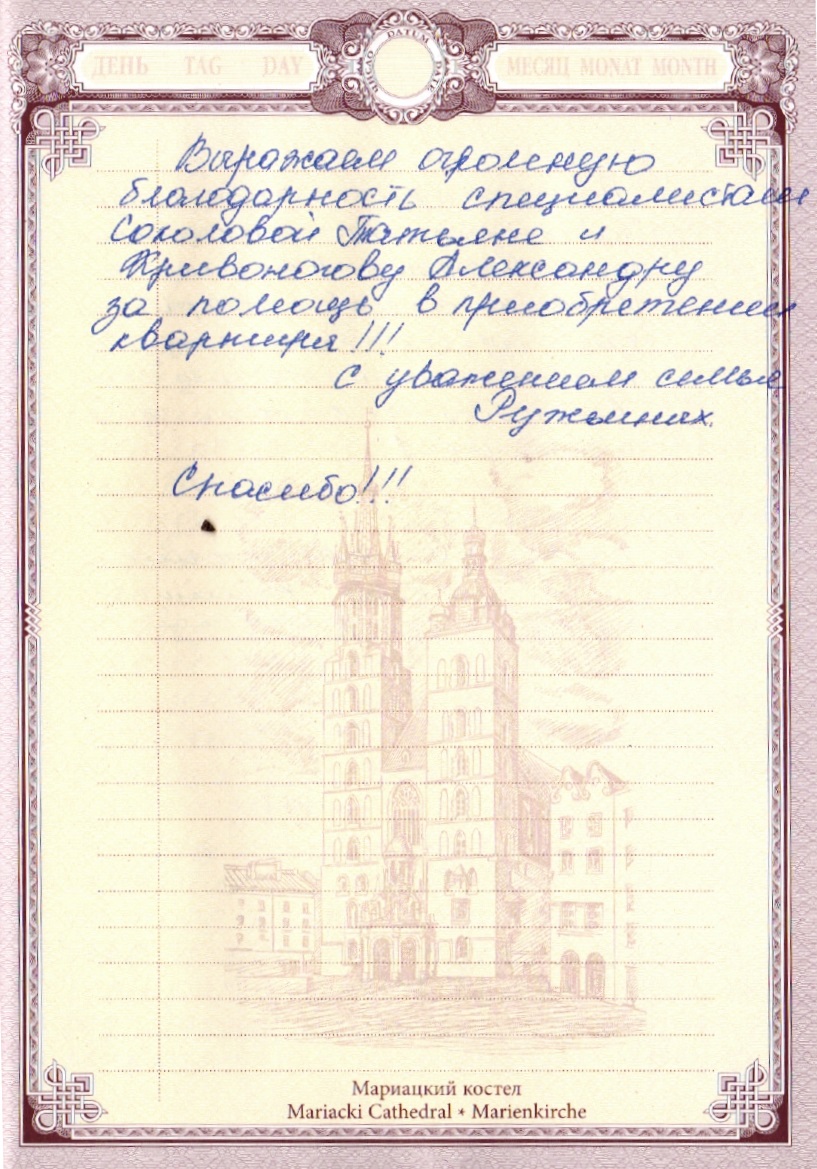 ДЕНЬ TAG DAY
DATUM DATE
МЕСЯЦ MONAT MONTH
Выражаем огромную
благодарность специалистам
Соколовой Татьяне и
Кривоногову Александру
за помощь в приобретении
квартиры!!!
С уважением семья
Спасибо!!!
Мариацкий костел
Mariacki Cathedral • Marienkirche